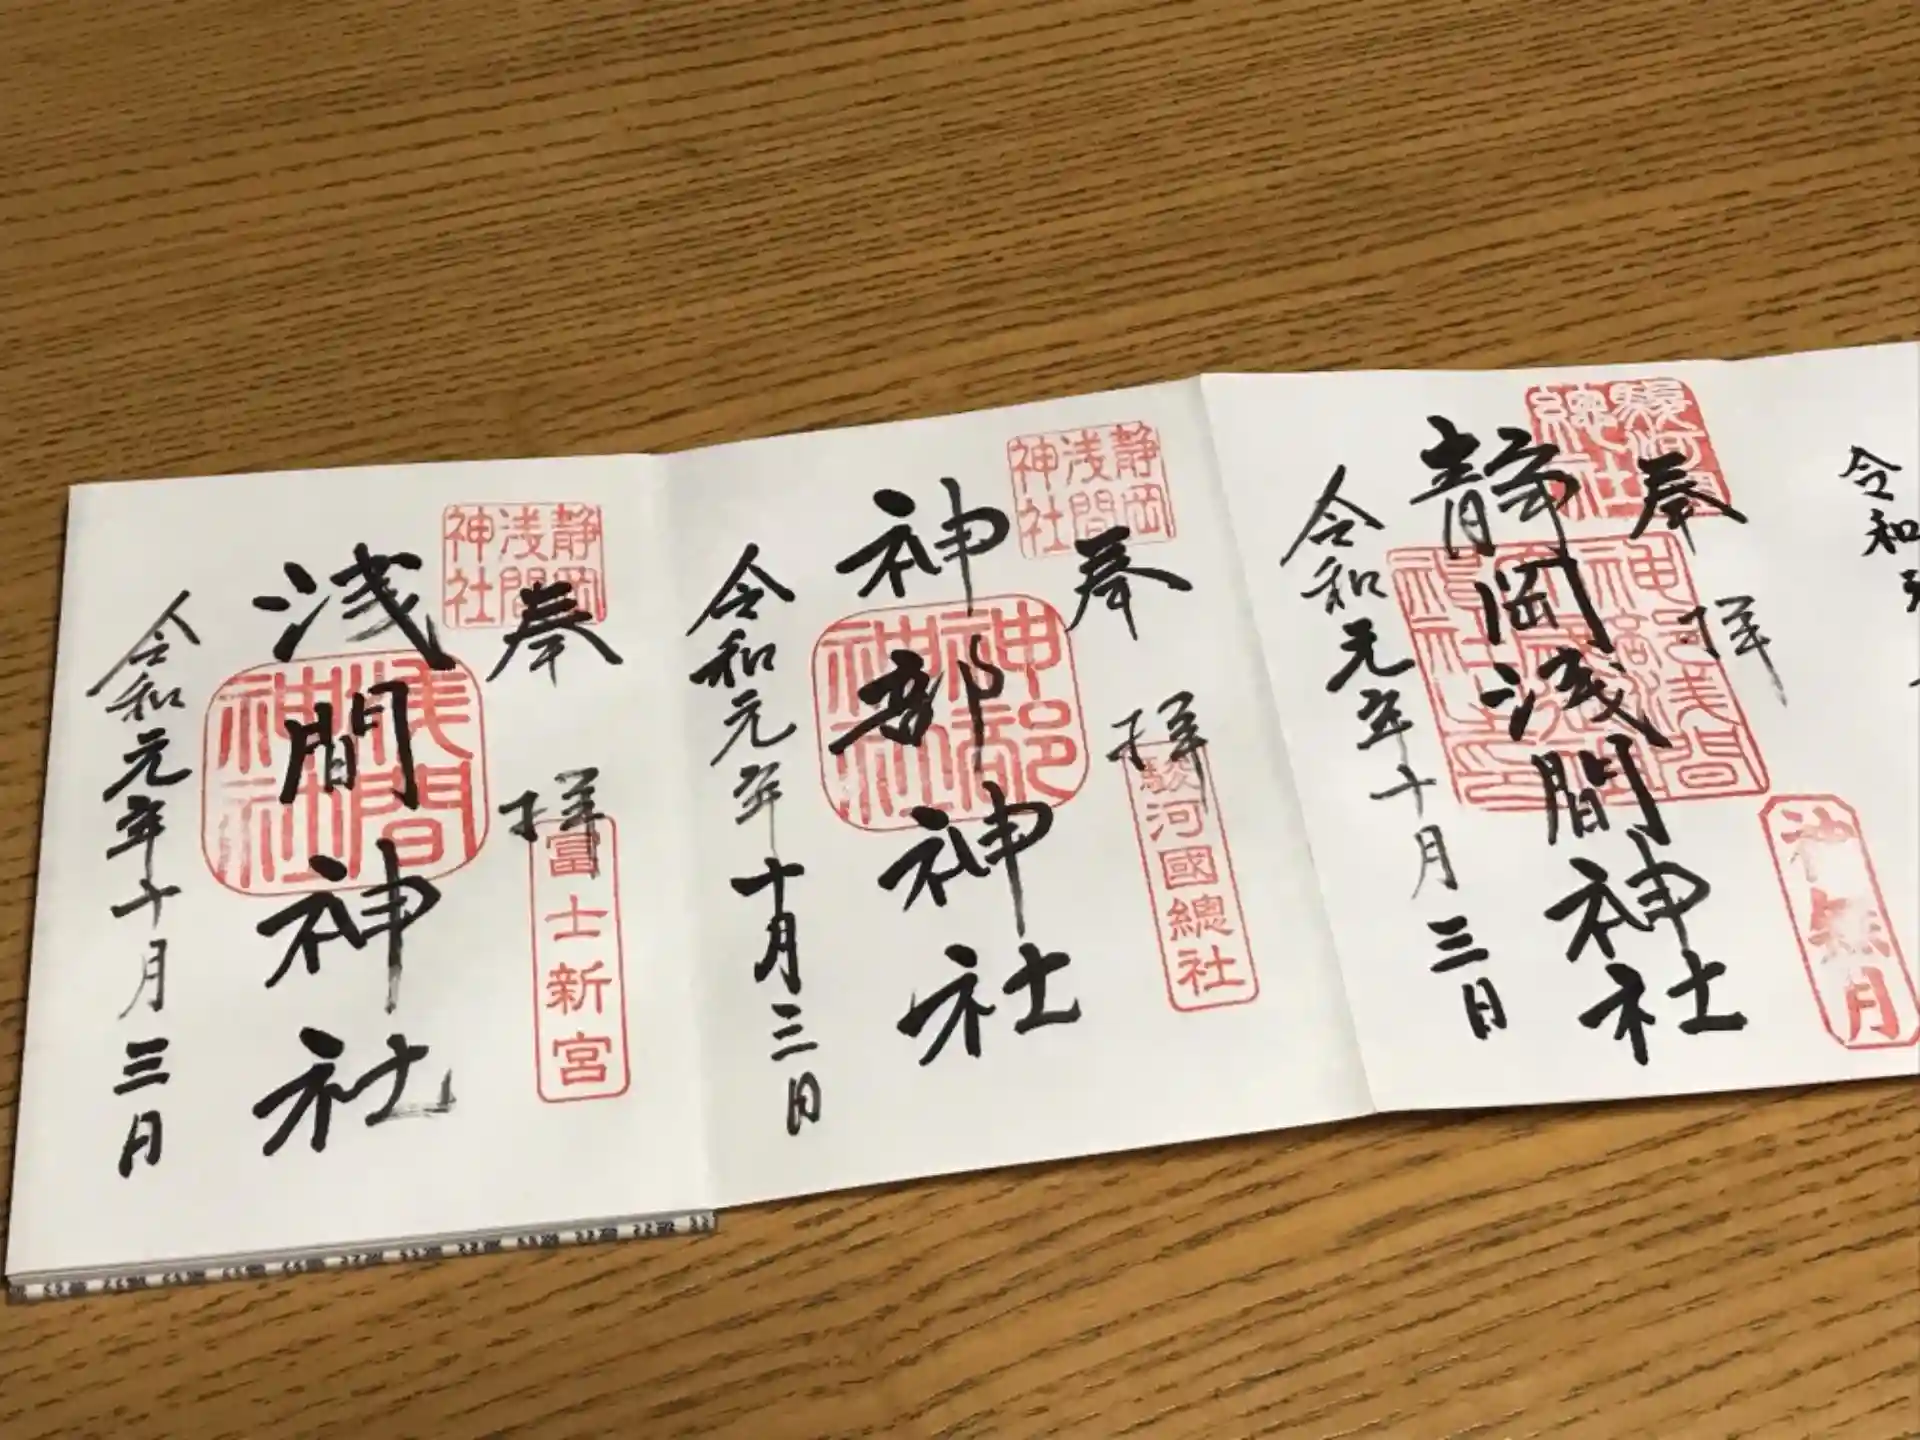 令和
奉拝
駿河國
總社
静岡浅間神社
神無月
令和元年十月三日
奉拝
静岡
浅間
神社
駿河國總社
神部神社
神部
神社
令和元年十月三日
奉拝
静岡
浅間
神社
富士新宮
浅間神社
浅間
神社
令和元年十月三日